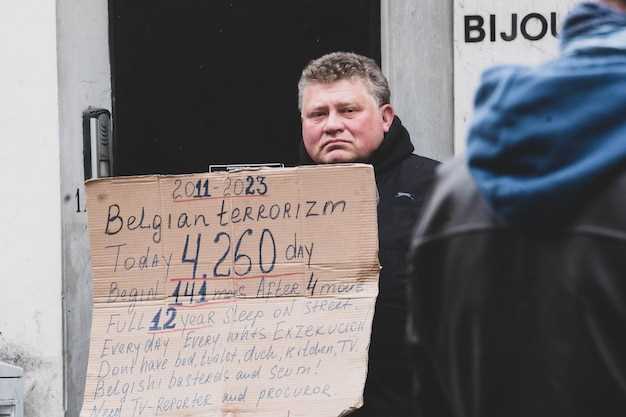 BIJOU
2011-2023
Belgian terrorizm
Today 4,260 day
Begin 141 mois After 4 move
Full 12 year sleep on street.
Everyday Every nights EXZEKUCIEN
Dont have bed, toilet, duch, kitchen, TV.
Belgishi basterds and scum!
Need TV-Reporter and procuror.